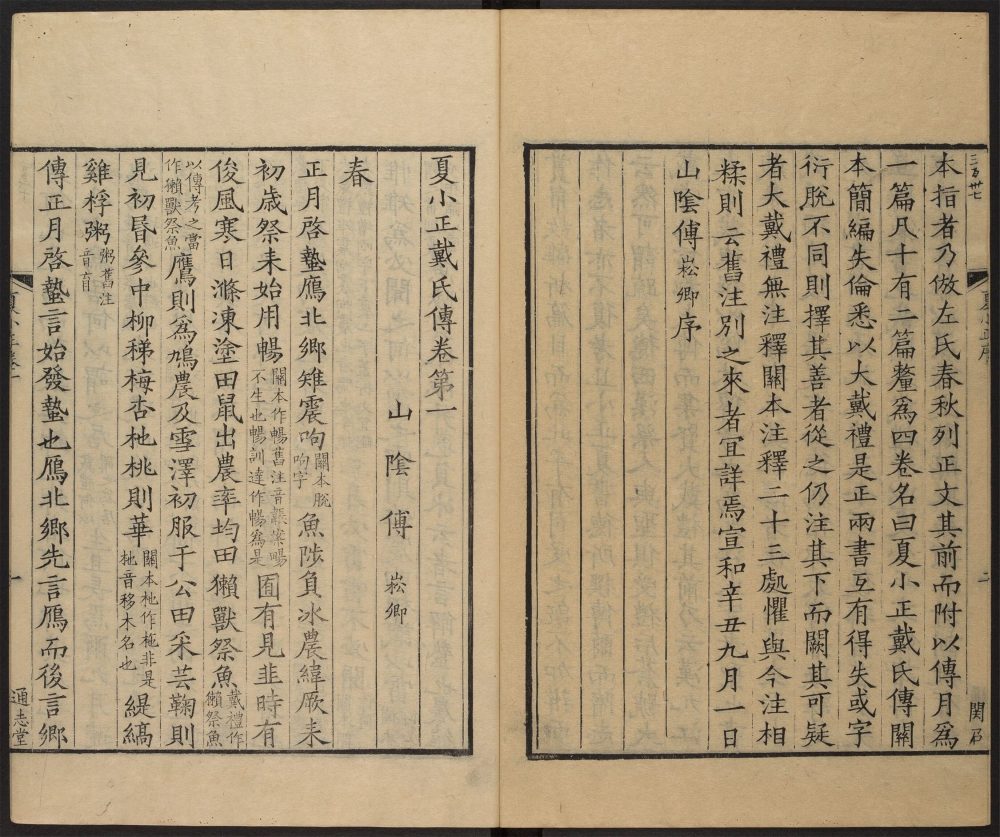 本指者乃倣左氏春秋列正文其前而附以傳月爲
一篇凡十有二篇釐爲四卷名曰夏小正戴氏傳關
本簡編失倫悉以大戴禮是正兩書互有得失或字
衍脫不同則擇其善者從之仍注其下而闕其可疑
者大戴禮無注釋關本注釋二十三處懼與今注相
糅則云舊注別之來者宜詳焉宣和辛丑九月一日
山陰傅崧卿序
夏小正戴氏傳卷第一
山陰傅 崧卿
春
正月啓蟄鴈北鄉雉震呴關本脫呴字魚陟負冰農緯厥耒
初歲祭耒始用暢關本作暢舊注音䵣案暢不生也暢訓達作暢爲是囿有見韭時有
俊風寒日滌凍塗田鼠出農率均田獺獸祭魚戴禮作獺祭魚
以傳考之當作獺獸祭魚鷹則爲鳩農及雪澤初服于公田采芸鞠則
見初昏參中柳稊梅杏杝桃則華關本杝作柂非是杝音移木名也緹縞
雞桴粥粥舊注音育
傳正月啓蟄言始發蟄也鴈北鄉先言鴈而後言鄉
通志堂